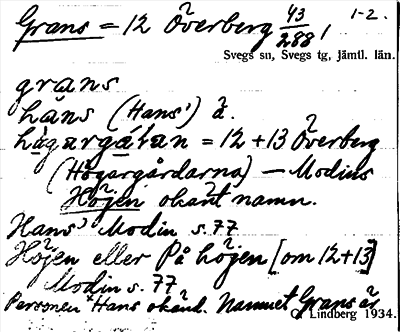 Grans = 12 Överberg 43/288, 1-2.
Svegs sn, Svegs tg, jämtl. län.
grans
hãns (Hans') å.
hågargáɫan = 12 + 13 Överberg
(Högargårdarna) — Modins
Höjen okänt namn.
Hans' Modin s. 77
Höjen eller På höjen [om 12+13]
Modin s. 77
Personen Hans okänd. Namnet Grans är
O. Lindberg 1934.